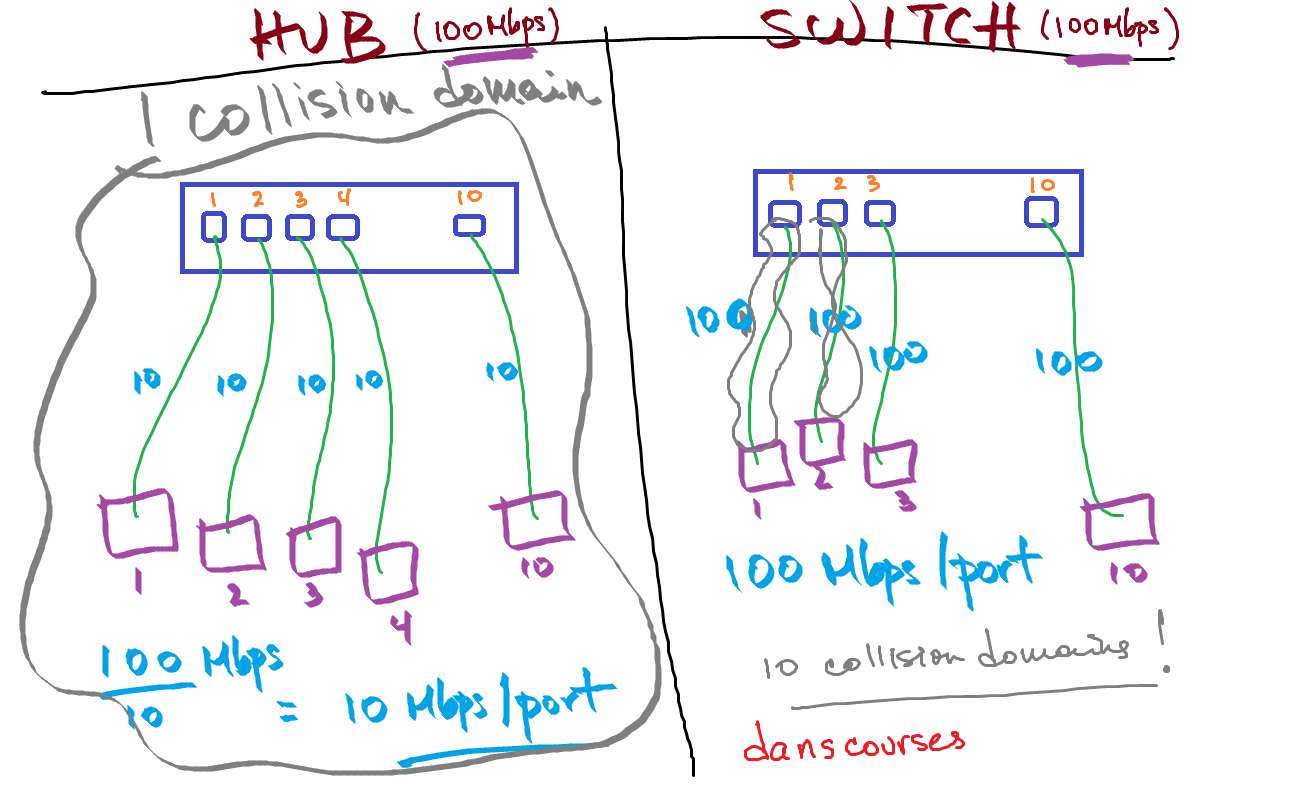 HUB (100Mbps)
1 collision domain
1 2 3 4 10
10 10 10 10 10
1 2 3 4 10
100 Mbps
10 = 10 Mbps/port
SWITCH (100Mbps)
1 2 3 10
100 100 100 100
1 2 3 10
100 Mbps/port
10 collision domains!
danscourses